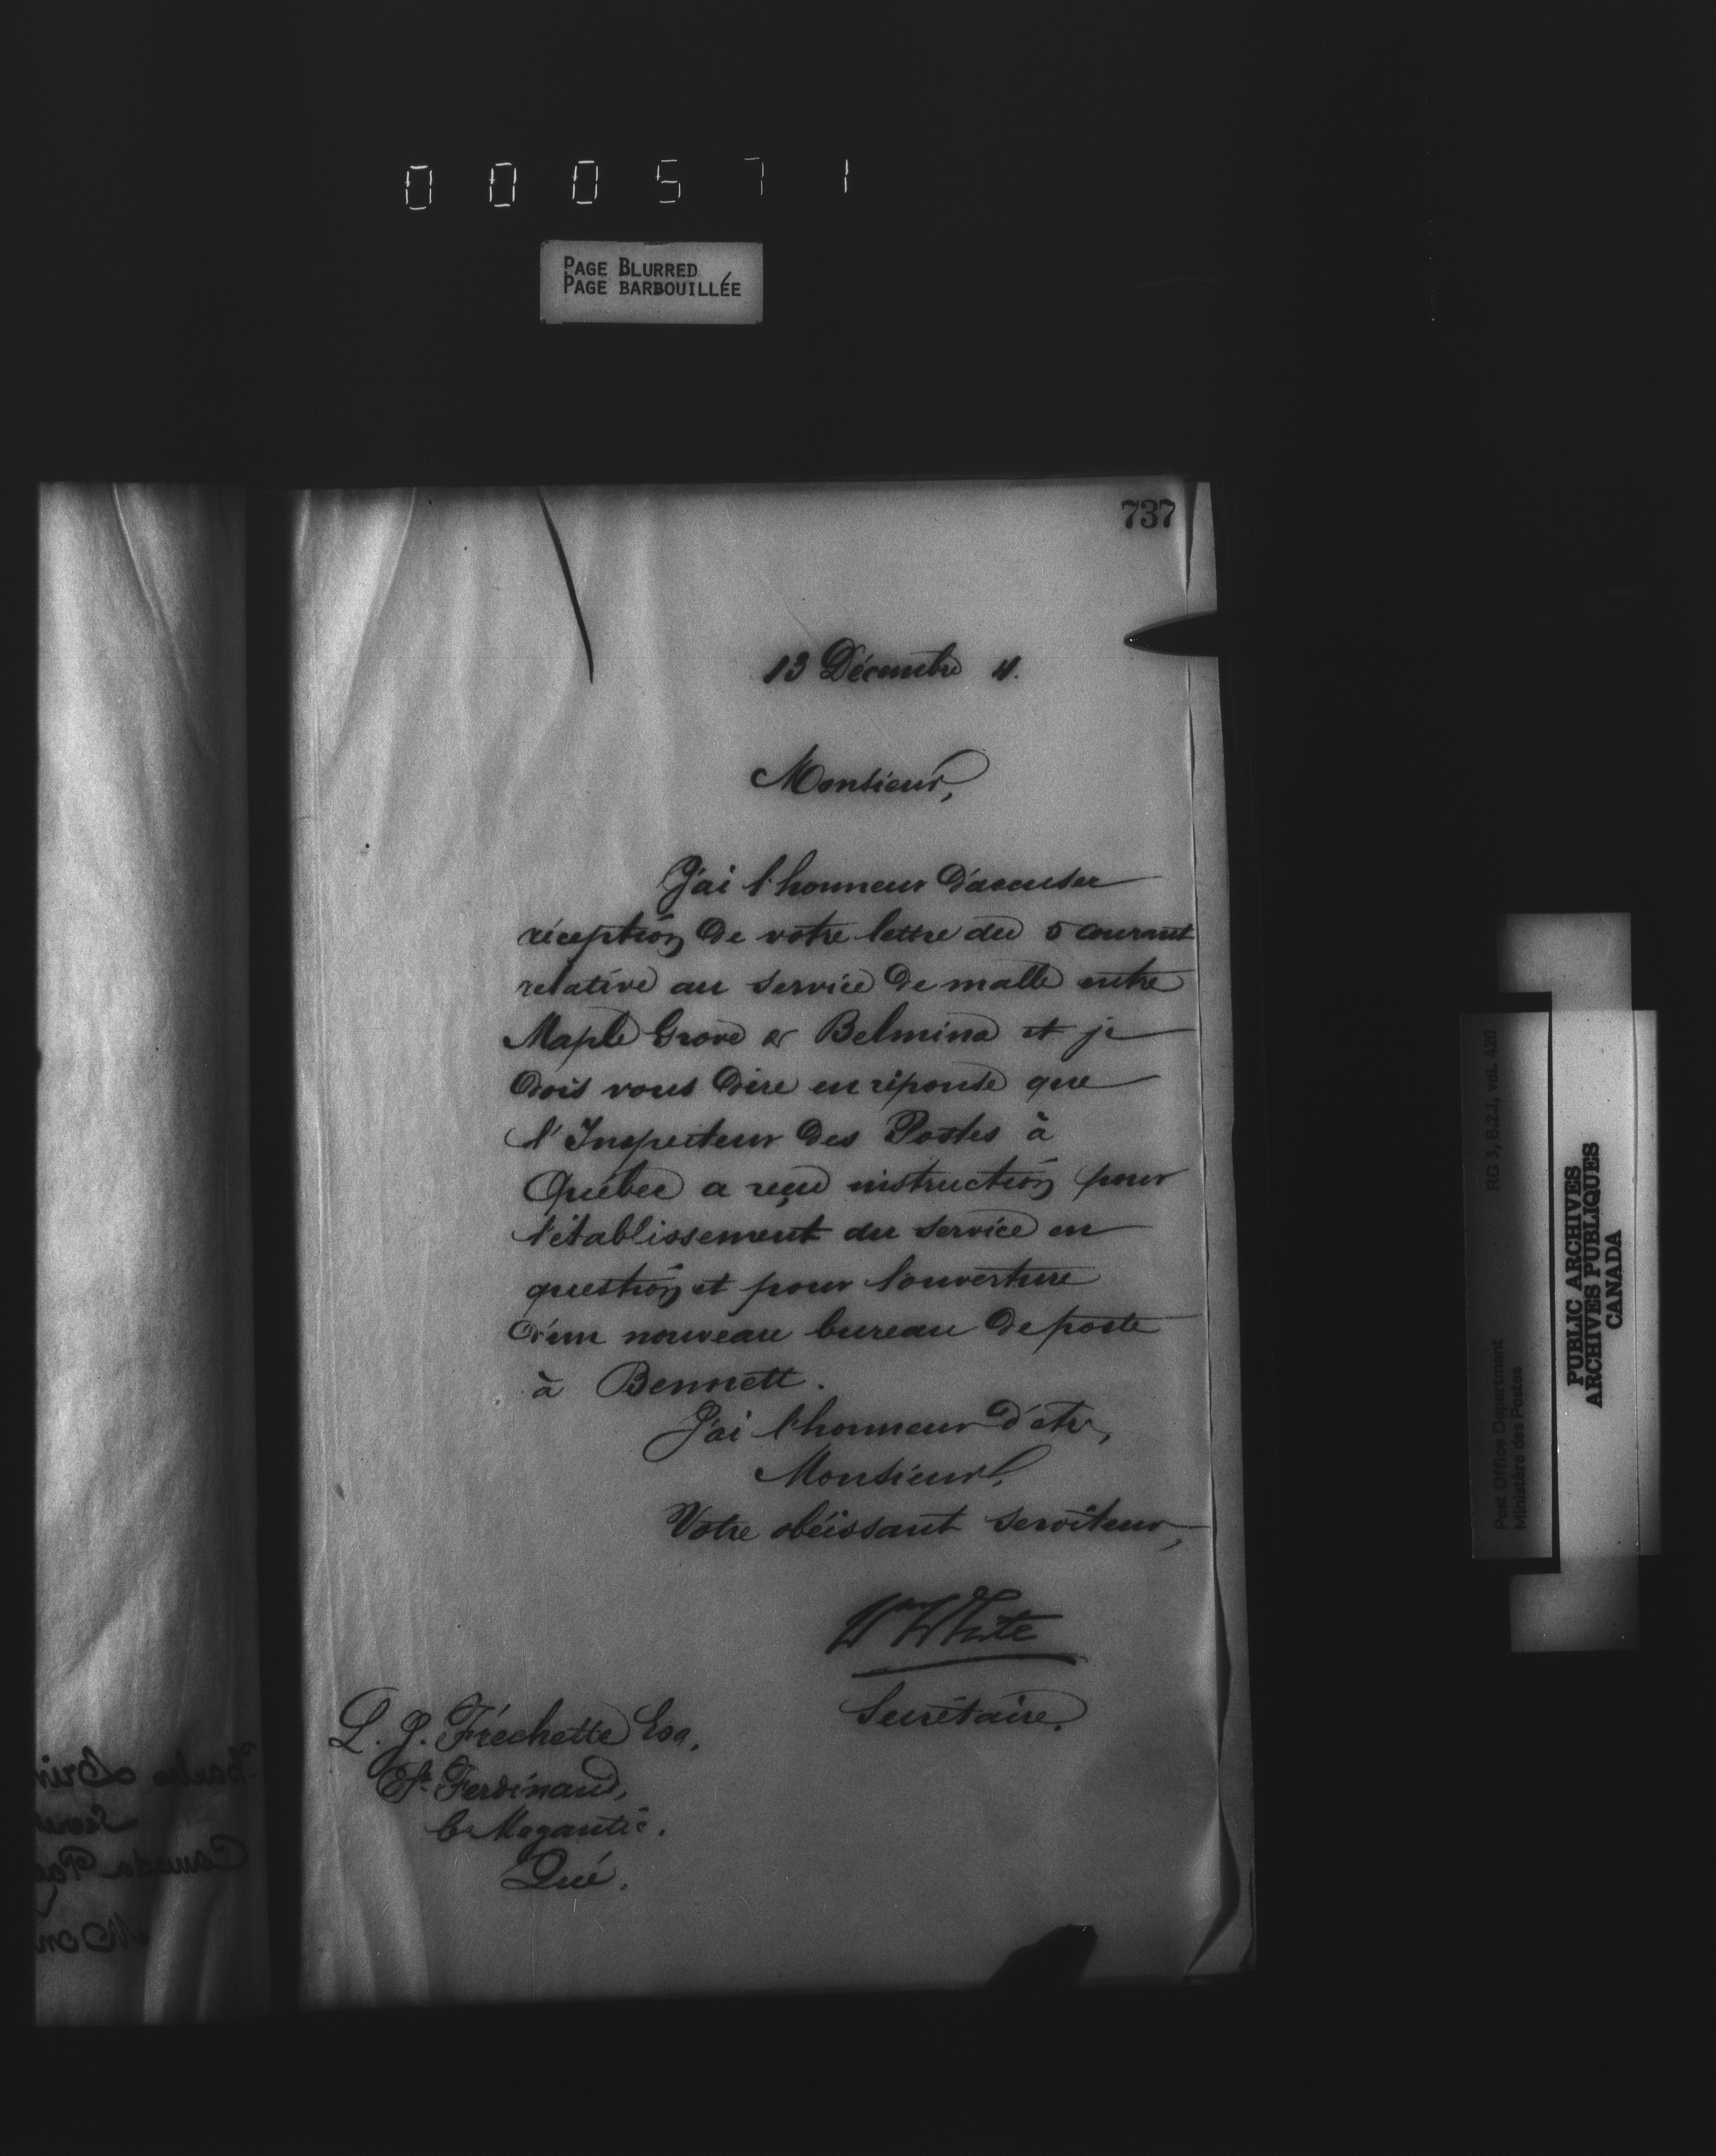 000571
PAGE BLURRED
PAGE BARBOUILLÉE
737
13 Décembre 4.
Monsieur,
J'ai l'honneur d'accuser
réception de votre lettre du 5 courant
relative au service de malle entre
Maple Grove & Belmina et je
dois vous dire en réponse que
l'Inspecteur des Postes à
Québec a reçu instruction pour
l'établissement du service en
question et pour l'ouverture
d'un nouveau bureau de poste
à Bennett.
J'ai l'honneur d'etre,
Monsieur,
Votre obéissant serviteur,
Wm White
Secrétaire.
L. J. Fréchette Esq.
St. Ferdinand,
Co Megantic.
Qué.
RG 3, B.2.1, vol. 420
Post Office Department
Ministère des Postes
PUBLIC ARCHIVES
ARCHIVES PUBLIQUES
CANADA